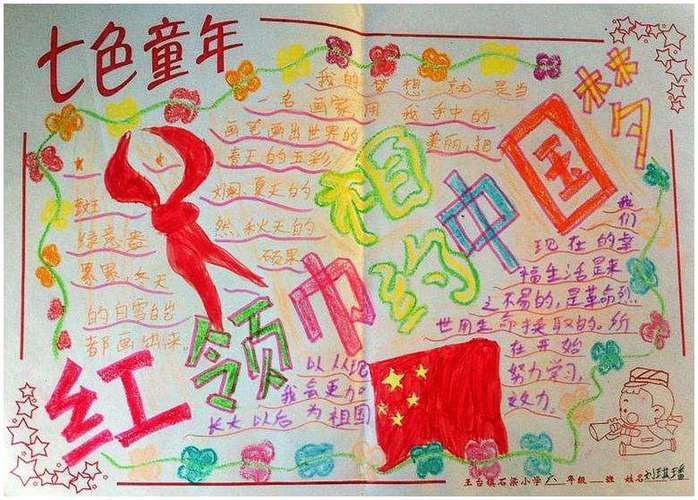 七色童年
我的梦想就是当
一名画家,用我手中的
画笔画出世界的美丽,把
春天的五彩
斑斓,夏天的
绿意盎然,秋天的
硕果
累累,冬天
的白雪皑皑
都画出来。
红领巾相约中国梦
我们
现在的幸
福生活是来
之不易的,是革命烈
世用生命换取的。所
以从现在开始
我会更加努力学习,
长大以后为祖国效力。
王台镇石梁小学六年级 班 姓名